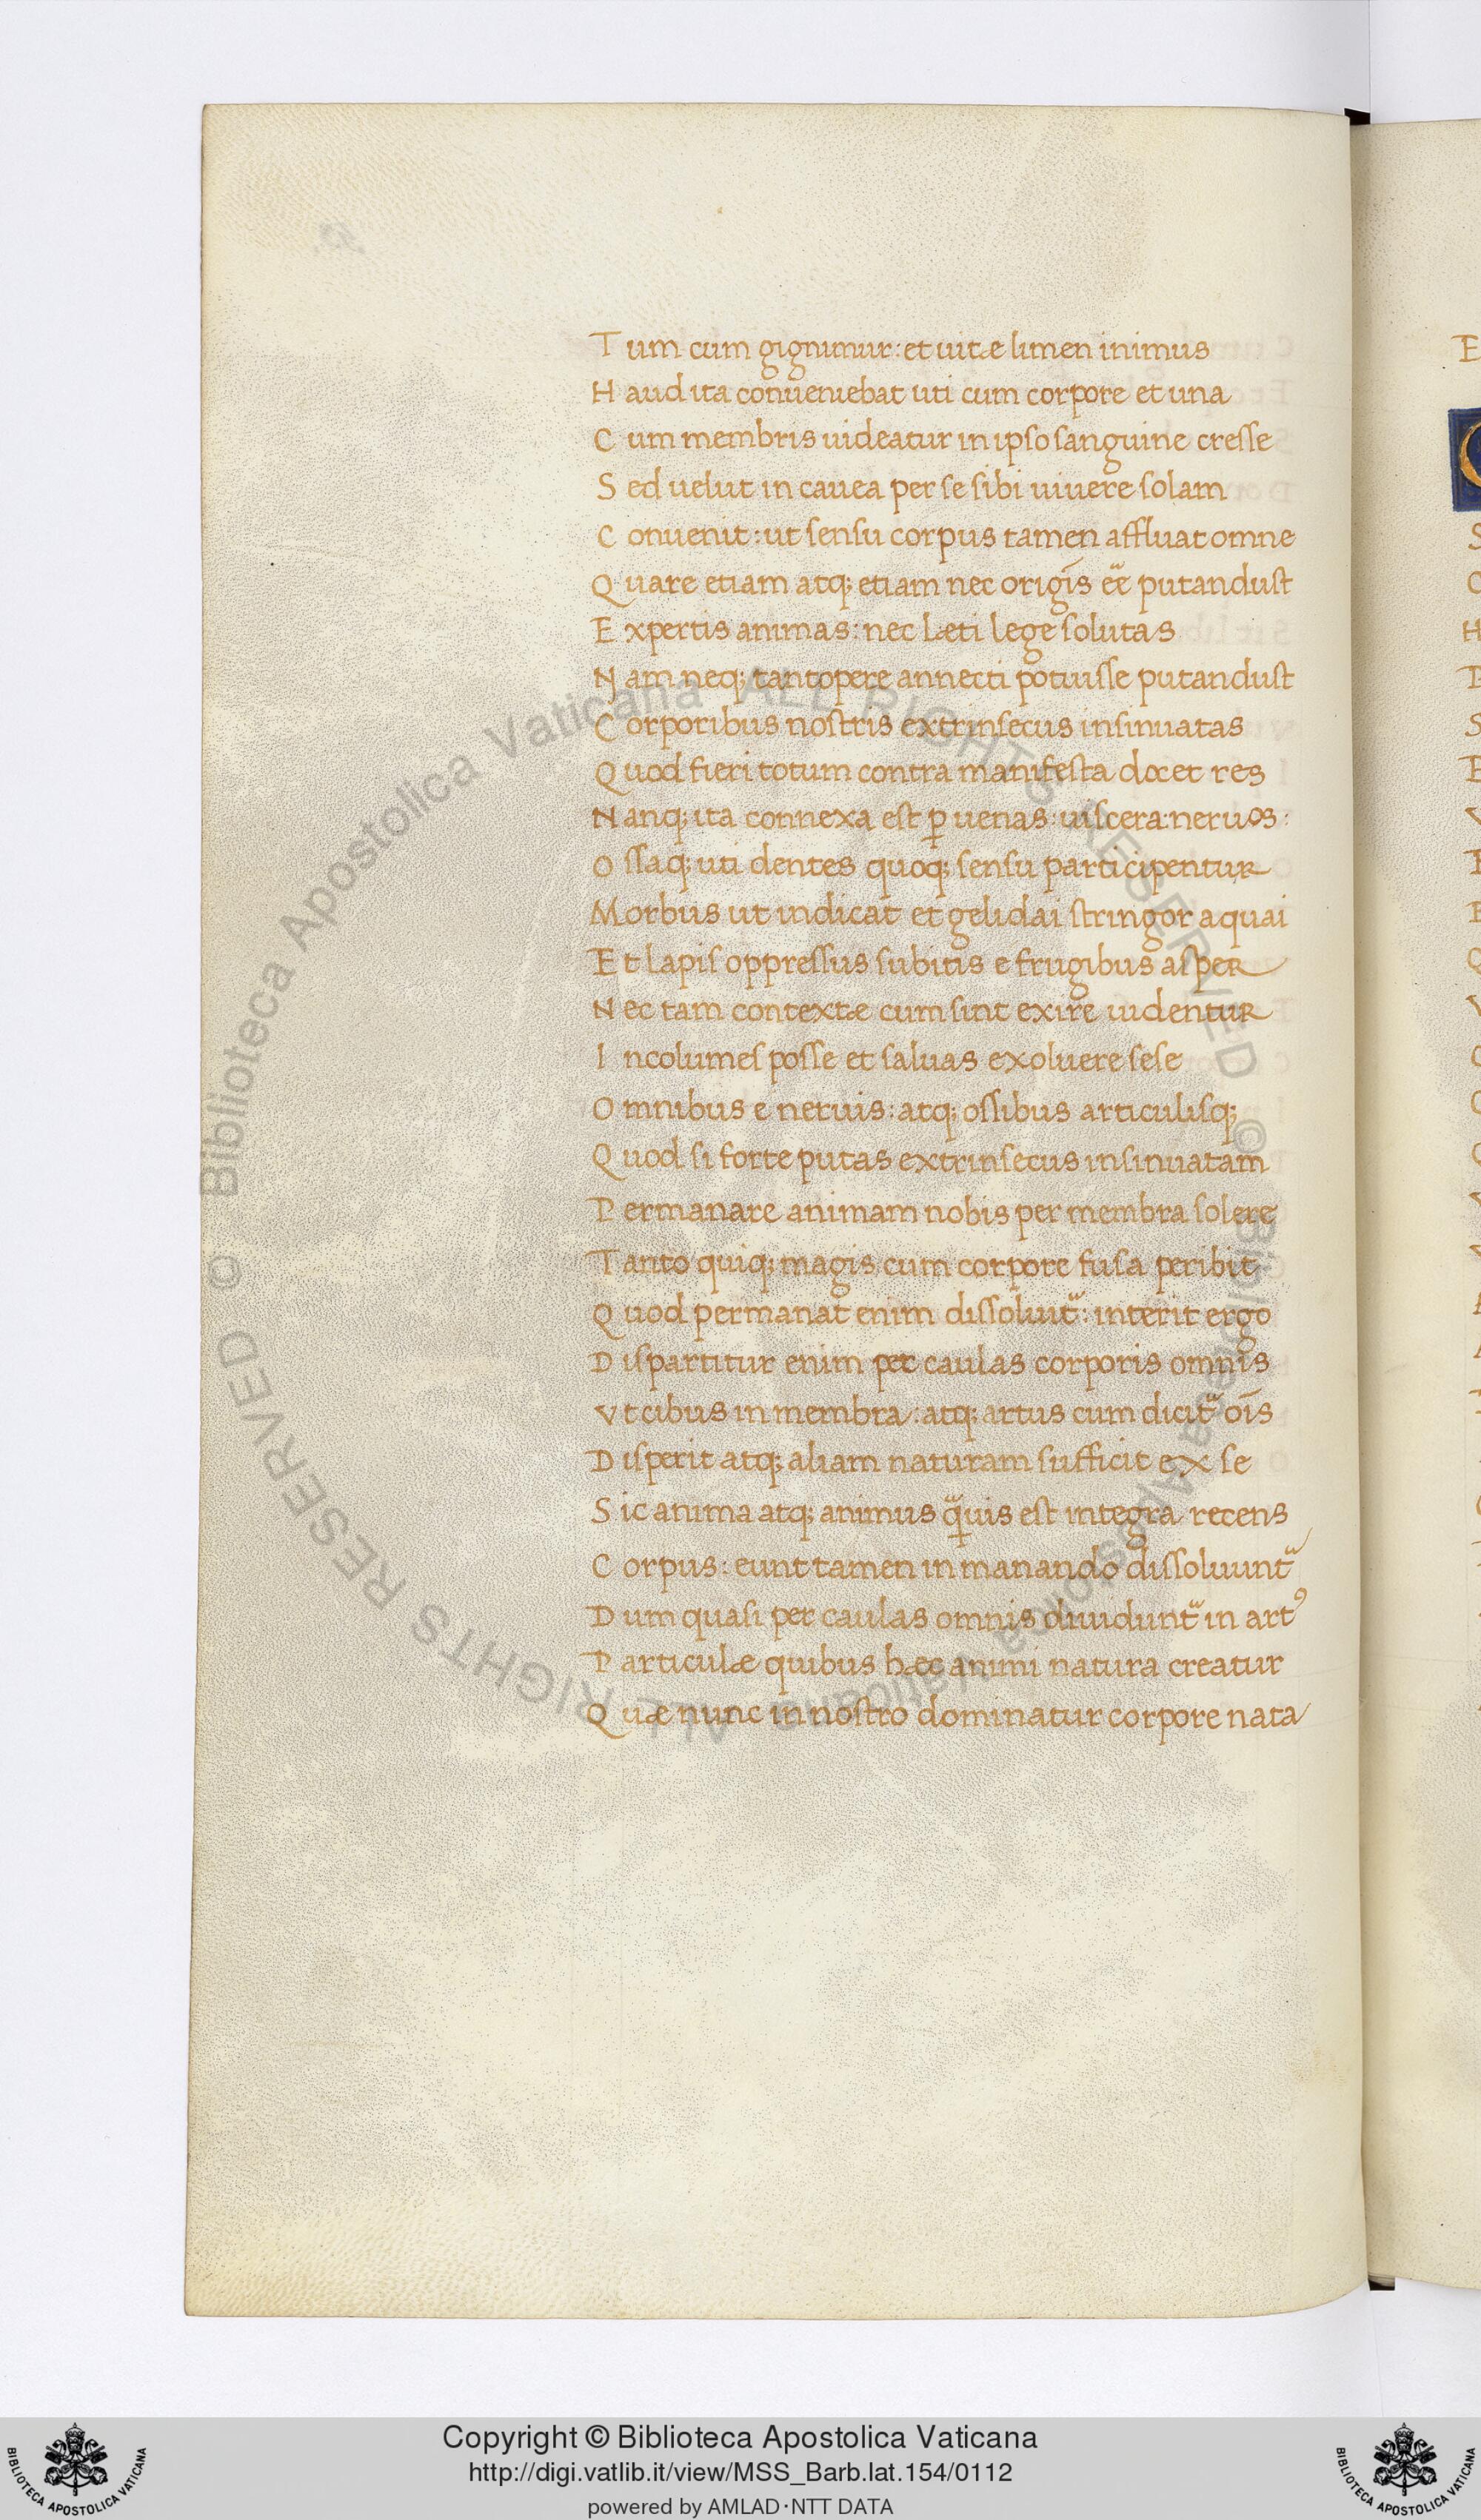 Tum cum gignimur: et uitæ limen inimus
Haud ita conueniebat uti cum corpore et una
Cum membris uideatur in ipso sanguine cresse
Sed uelut in cauea per se sibi uiuere solam
Conuenit: ut sensu corpus tamen affluat omne
Quare etiam atq; etiam nec origīs ēē putandust
Expertis animas: nec læti lege solutas
Nam neq; tantopere annecti potuisse putandust
Corporibus nostris extrinsecus insinuatas
Quod fieri totum contra manifesta docet res
Nanq; ita connexa est ꝑ uenas: uiscera: neruos:
Ossaq; uti dentes quoq; sensu participentur
Morbus ut indicat et gelidai stringor aquai
Et lapis oppressus subitis e frugibus asper
Nec tam contextæ cum sint exire uidentur
Incolumes posse et saluas exoluere sese
Omnibus e neruis: atq; ossibus articulisq;
Quod si forte putas extrinsecus insinuatam
Permanare animam nobis per membra solere
Tanto quiq; magis cum corpore fusa peribit
Quod permanat enim dissoluit᷑: interit ergo
Dispartitur enim per caulas corporis omnis
Vt cibus in membra: atq; artus cum dicit᷑ oīs
Disperit atq; aliam naturam sufficit ex se
Sic anima atq; animus q̃uis est integra recens
Corpus: eunt tamen in manando dissoluunt᷑
Dum quasi per caulas omnis diuidunt᷑ in artꝰ
Particulæ quibus hæc animi natura creatur
Quæ nunc in nostro dominatur corpore nata
Biblioteca Apostolica Vaticana ALL RIGHTS RESERVED ©
Biblioteca Apostolica Vaticana ALL RIGHTS RESERVED ©
BIBLIOTECA APOSTOLICA VATICANA
Copyright © Biblioteca Apostolica Vaticana
http://digi.vatlib.it/view/MSS_Barb.lat.154/0112
powered by AMLAD·NTT DATA
BIBLIOTECA APOSTOLICA VATICANA